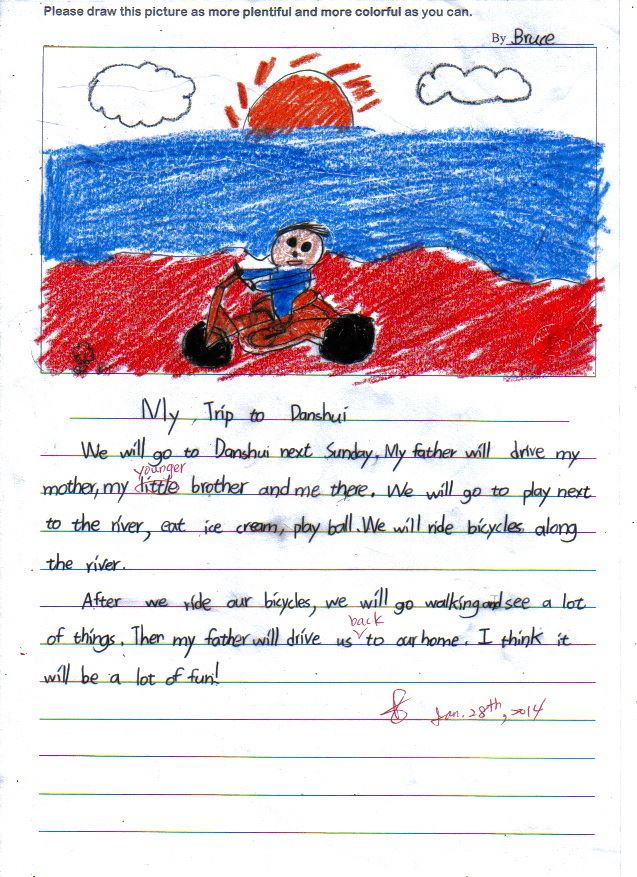 Please draw this picture as more plentiful and more colorful as you can.
By Bruce
My Trip to Danshui
We will go to Danshui next Sunday. My father will drive my
younger
mother, my little brother and me there. We will go to play next
to the river, eat ice cream, play ball. We will ride bicycles along
the river.
After we ride our bicycles, we will go walking and see a lot
back
of things. Then my father will drive us to our home. I think it
will be a lot of fun!
Jan. 28th, 2014